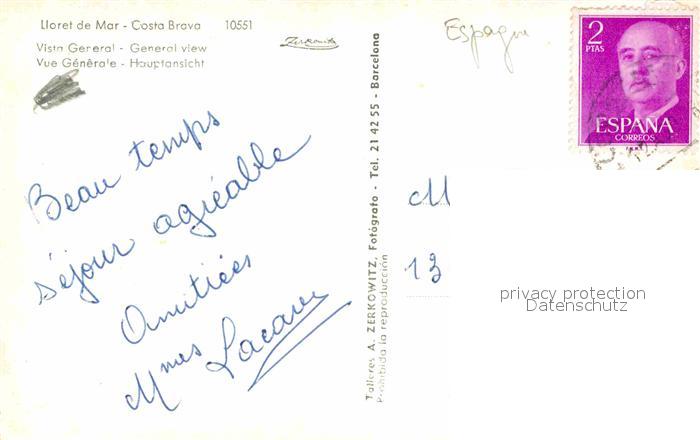 Lloret de Mar - Costa Brava 10551
Vista General - General view
Vue Générale - Hauptansicht
Zerkowitz
Beau temps
séjour agréable
Amitiées
Mmes Lacave
Talleres A. ZERKOWITZ, Fotógrafo - Tel. 21 42 55 - Barcelona
Prohibida la reproducción
Espagne
2
PTAS
ESPAÑA
CORREOS
M
13
privacy protection
Datenschutz